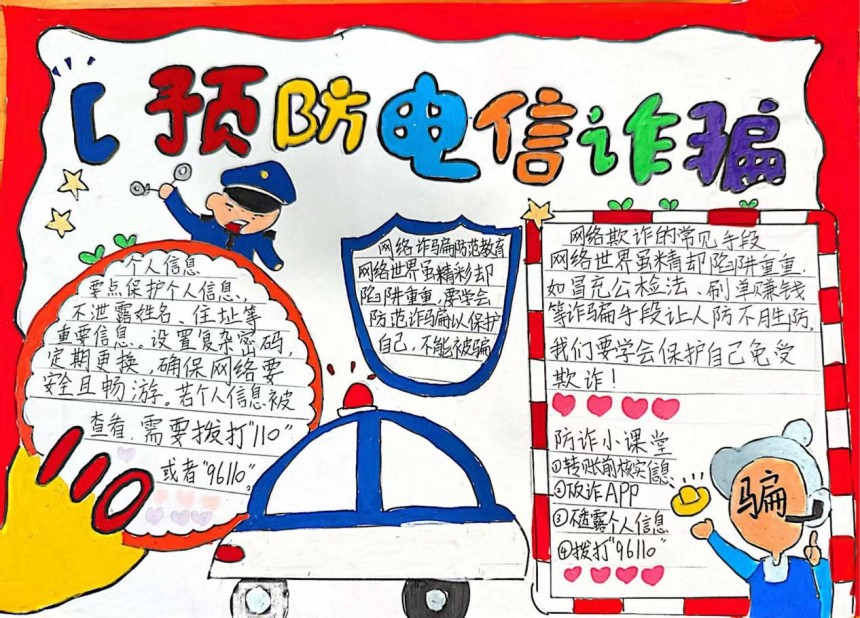 预防电信诈骗
个人信息
要点保护个人信息,
不泄露姓名、住址等
重要信息。设置复杂密码,
定期更换,确保网络要
安全且畅游。若个人信息被
查看,需要拨打"110"
或者"96110"。
110
网络诈骗防范教育
网络世界虽精彩却
陷阱重重,要学会
防范诈骗以保护
自己,不能被骗
网络欺诈的常见手段
网络世界虽精却陷阱重重,
如冒充公检法、刷单赚钱
等诈骗手段让人防不胜防,
我们要学会保护自己免受
欺诈!
防诈小课堂
①转账前核实信息
②反诈APP
③不透露个人信息
④拨打"96110"
骗